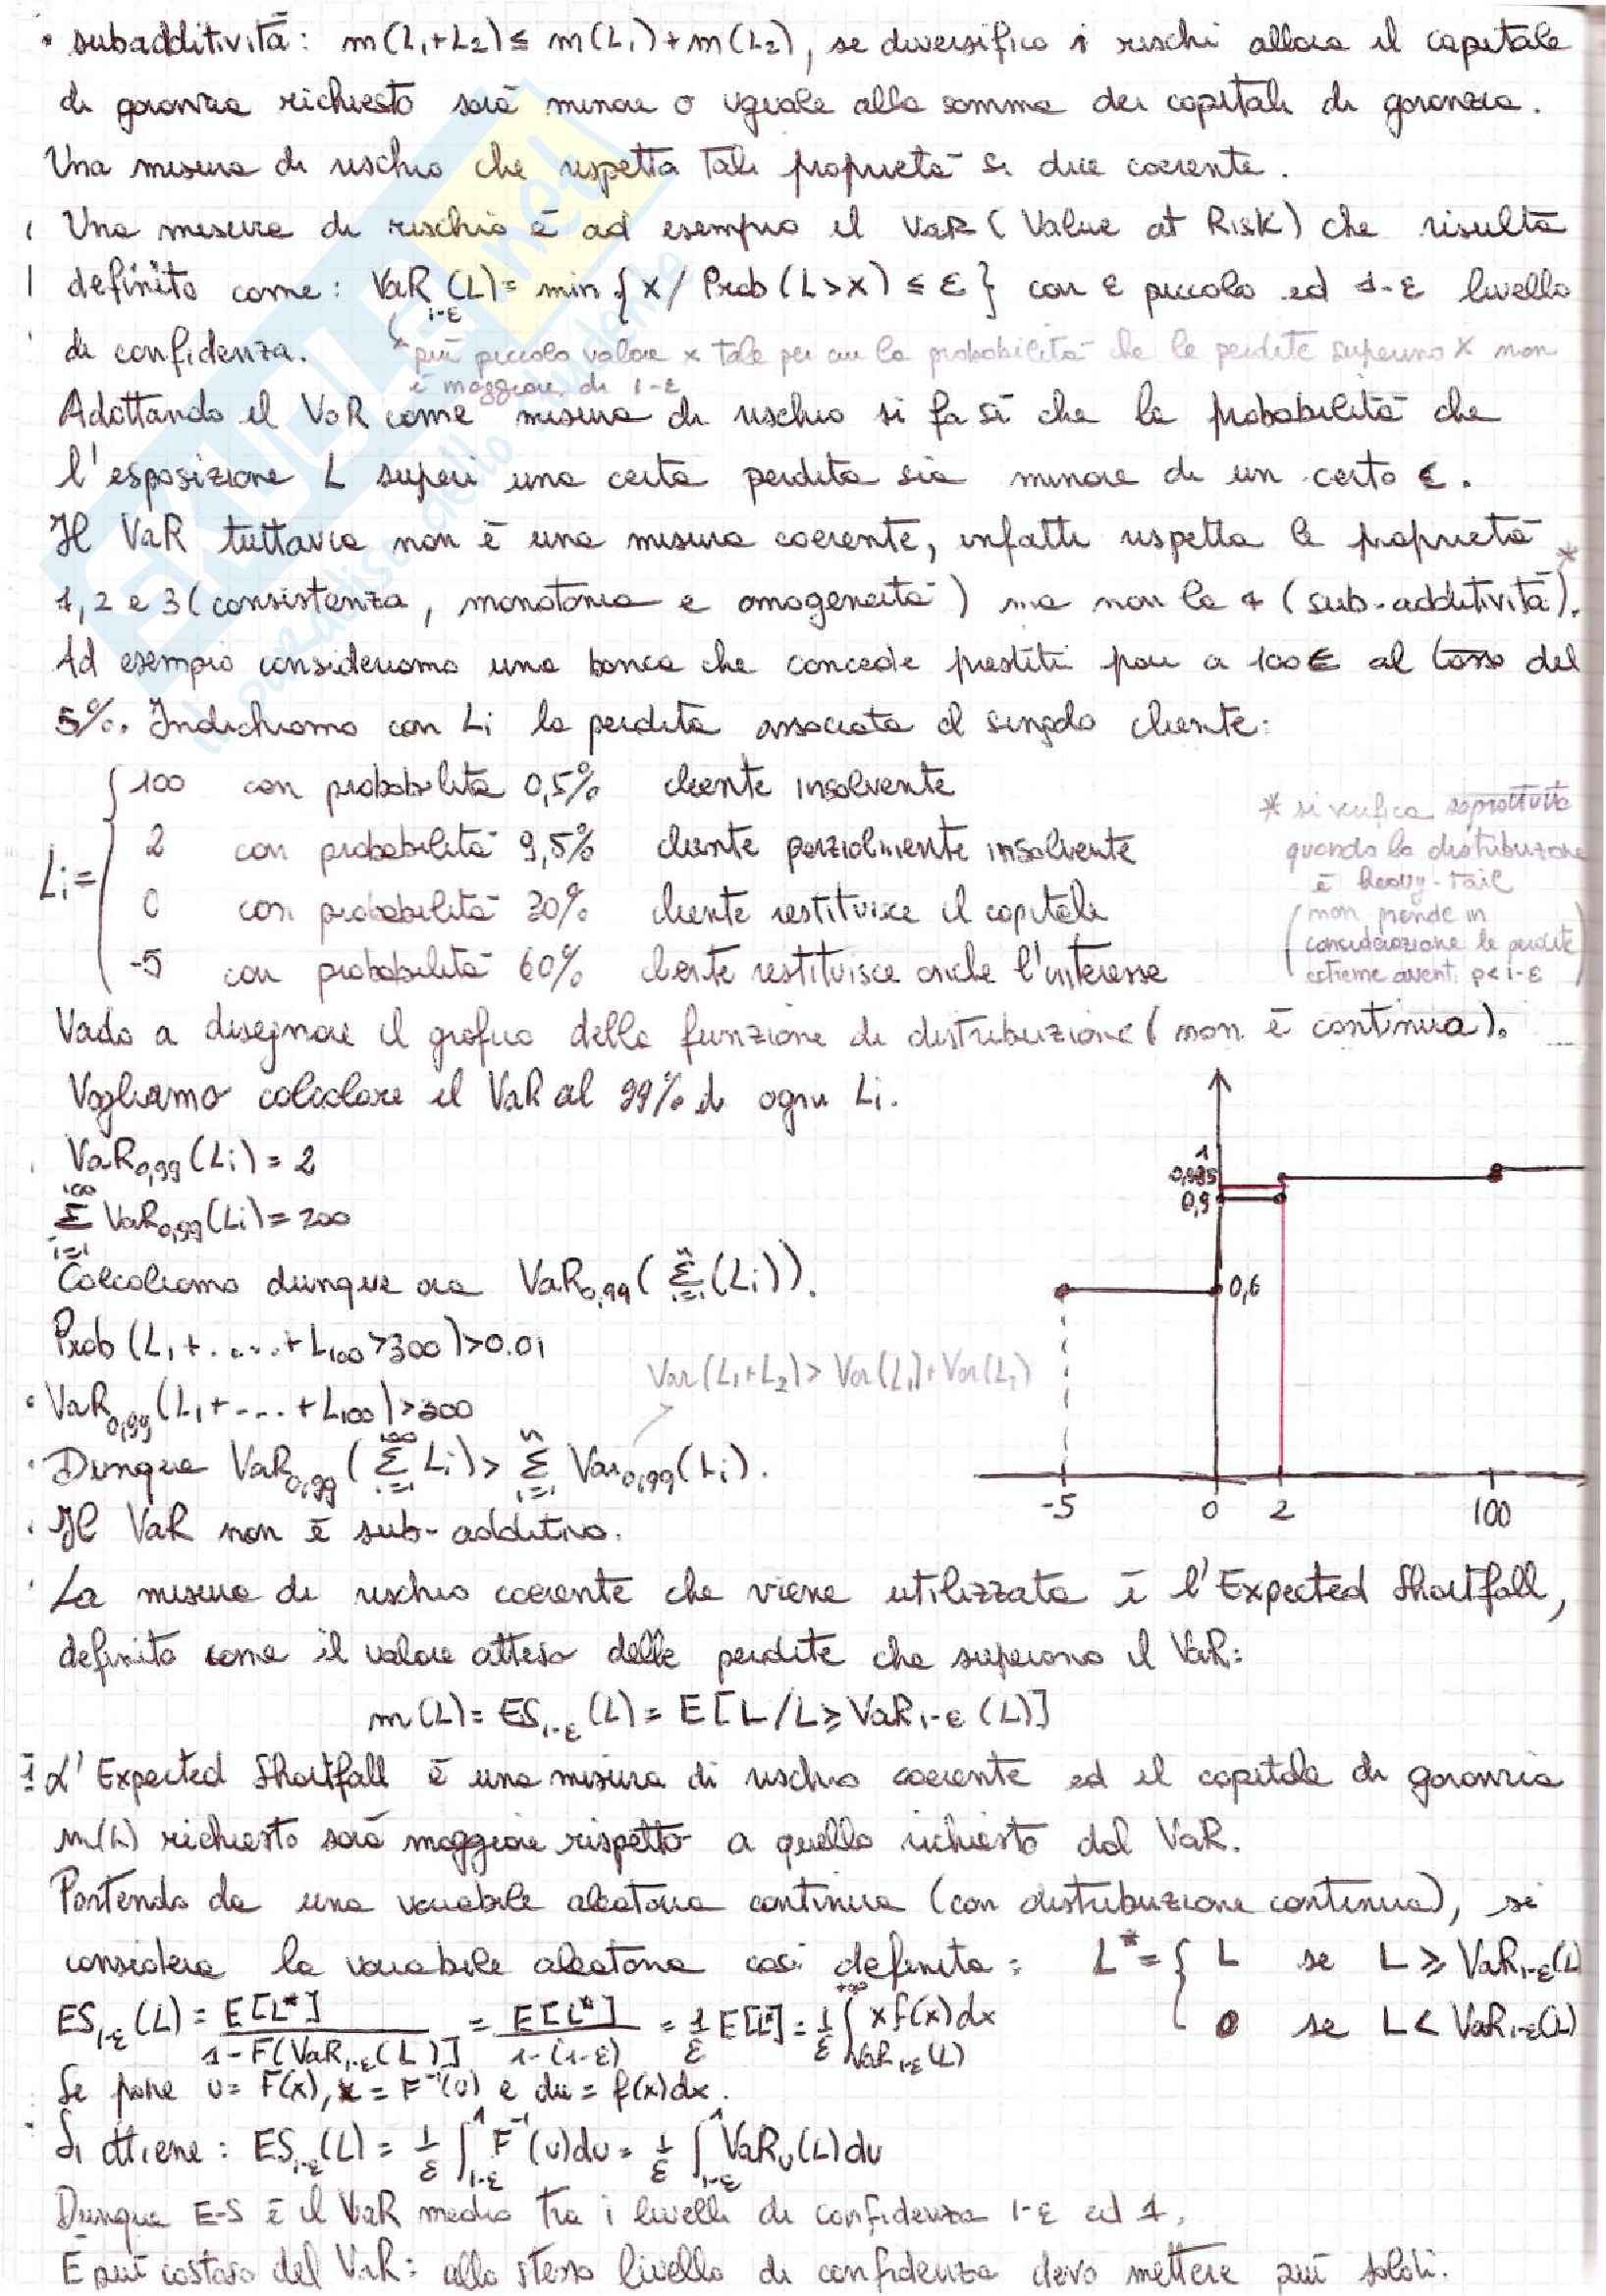 • subadditività: m(L₁+L₂) ≤ m(L₁)+m(L₂), se diversifico i rischi allora il capitale
di garanzia richiesto sarà minore o uguale alla somma dei capitali di garanzia.
Una misura di rischio che rispetta tali proprietà si dice coerente.
Una misura di rischio è ad esempio il VaR (Value at Risk) che risulta
definito come: VaR₁₋ε(L) = min {x / Prob(L>x) ≤ ε} con ε piccolo ed 1-ε livello
di confidenza. * più piccolo valore x tale per cui la probabilità che le perdite superino x non
è maggiore di 1-ε
Adottando il VaR come misura di rischio si fa sì che la probabilità che
l'esposizione L superi una certa perdita sia minore di un certo ε.
Il VaR tuttavia non è una misura coerente, infatti rispetta le proprietà
1, 2 e 3 (consistenza, monotonia e omogeneità) ma non la 4 (sub-additività).*
Ad esempio consideriamo una banca che concede prestiti pari a 100€ al tasso del
5%. Indichiamo con Li la perdita associata al singolo cliente:
Li = { 100 con probabilità 0,5% cliente insolvente
2 con probabilità 9,5% cliente parzialmente insolvente
0 con probabilità 30% cliente restituisce il capitale
-5 con probabilità 60% cliente restituisce anche l'interesse
* si verifica soprattutto
quando la distribuzione
è heavy-tail
(non prende in
considerazione le perdite
estreme aventi p<1-ε)
Vado a disegnare il grafico della funzione di distribuzione (non è continua).
Vogliamo calcolare il VaR al 99% di ogni Li.
VaR₀,₉₉(Li) = 2
100 Σ i=1 VaR₀,₉₉(Li) = 200
Calcoliamo dunque ora VaR₀,₉₉( n Σ i=1 (Li)).
Prob(L₁+.....+L₁₀₀>300)>0.01
• VaR₀,₉₉(L₁+---.+L₁₀₀)>300
Var(L₁+L₂)>Var(L₁)+Var(L₂)
• Dunque VaR₀,₉₉( 100 Σ i=1 Li) > n Σ i=1 Var₀,₉₉(Li).
• Il VaR non è sub-additivo.
1
0,995
0,9
0,6
-5 0 2 100
La misura di rischio coerente che viene utilizzata è l'Expected Shortfall,
definito come il valore atteso delle perdite che superano il VaR:
m(L) = ES₁₋ε(L) = E[L / L ≥ VaR₁₋ε(L)]
L'Expected Shortfall è una misura di rischio coerente ed il capitale di garanzia
m(L) richiesto sarà maggiore rispetto a quello richiesto dal VaR.
Partendo da una variabile aleatoria continua (con distribuzione continua), si
considera la variabile aleatoria così definita: L* = { L se L ≥ VaR₁₋ε(L)
0 se L < VaR₁₋ε(L)
ES₁₋ε(L) = E[L*] / 1-F[VaR₁₋ε(L)] = E[L*] / 1-(1-ε) = 1/ε E[L*] = 1/ε ∫ +∞ VaR₁₋ε(L) x f(x)dx
Se pone u = F(x), x = F⁻¹(u) e du = f(x)dx.
Si ottiene: ES₁₋ε(L) = 1/ε ∫ 1 1-ε F⁻¹(u)du = 1/ε ∫ 1 1-ε VaRᵤ(L)du
Dunque E-S è il VaR medio tra i livelli di confidenza 1-ε ed 1.
È più costoso del VaR: allo stesso livello di confidenza devo mettere più soldi.